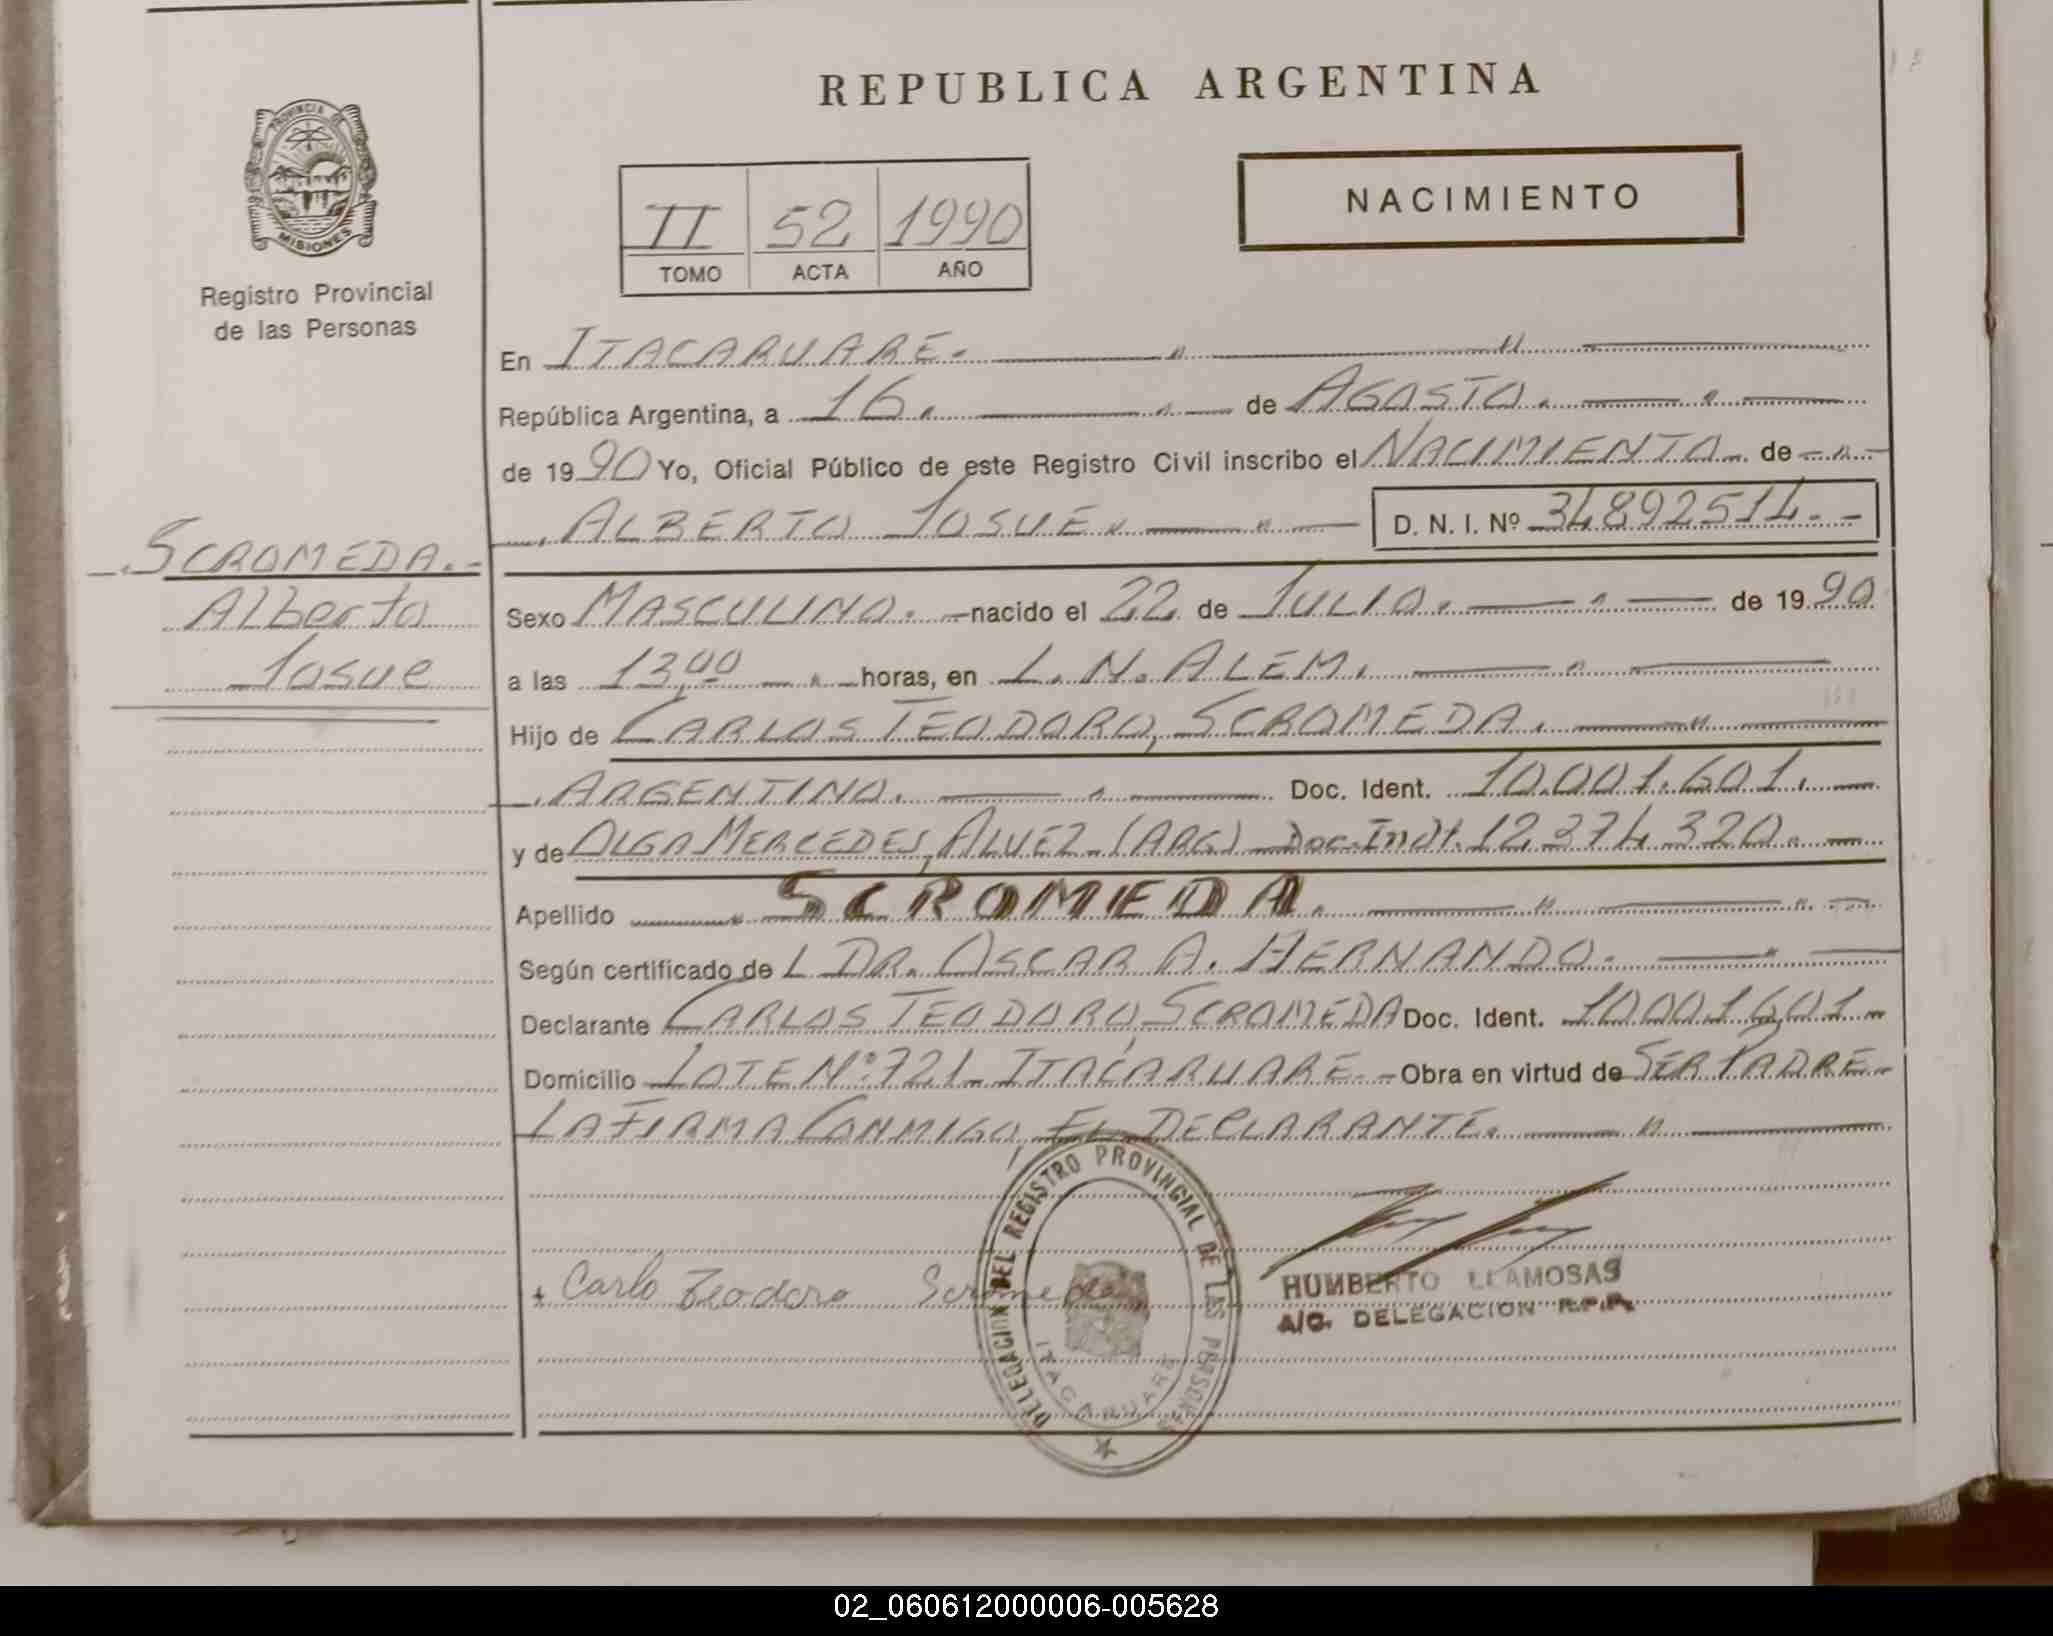 REPUBLICA ARGENTINA
PROVINCIA DE
MISIONES
Registro Provincial
de las Personas
II 52 1990
TOMO ACTA AÑO
NACIMIENTO
En ITACARUARE.
República Argentina, a 16. de AGOSTO.
de 1990 Yo, Oficial Público de este Registro Civil inscribo el NACIMIENTO de
ALBERTO JOSUE. D. N. I. Nº 34892514.-
SCROMEDA.-
Alberto
Josue
Sexo MASCULINO. nacido el 22 de JULIO. de 1990
a las 13,00 horas, en L. N. ALEM.
Hijo de CARLOS TEODORO, SCROMEDA.
ARGENTINO. Doc. Ident. 10.001.601.
y de OLGA MERCEDES, ALVEZ-(ARG) Doc. Indt. 12.374.320.
Apellido SCROMEDA.
Según certificado de L DR. OSCAR A. HERNANDO.
Declarante CARLOS TEODORO, SCROMEDA Doc. Ident. 10.001.601.-
Domicilio LOTE Nº 721- ITACARUARE.- Obra en virtud de SER PADRE.-
LA FIRMA CONMIGO, EL DECLARANTE.
DELEGACION DEL REGISTRO PROVINCIAL DE LAS PERSONAS
ITACARUARE
Carlo Teodoro Scromeda
HUMBERTO LLAMOSAS
A/C. DELEGACION R.P.P.
02_060612000006-005628